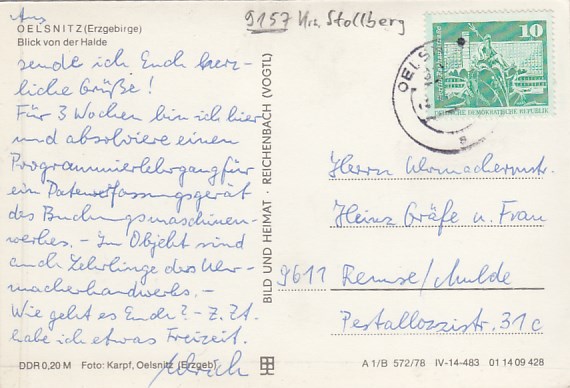 Aus
OELSNITZ (Erzgebirge)
Blick von der Halde
sende ich Euch herz-
liche Grüße!
Für 3 Wochen bin ich hier
und absolviere einen
Programmierlehrgang für
ein Datenerfassungsgerät
des Buchungsmaschinen-
werkes. – Im Objekt sind
auch Lehrlinge des Uhr-
macherhandwerks. –
Wie geht es Euch? – Z. Zt.
habe ich etwas Freizeit.
Ulrich
DDR 0,20 M Foto: Karpf, Oelsnitz (Erzgeb)
BILD UND HEIMAT · REICHENBACH (VOGTL)
9157 Krs. Stollberg
10
DEUTSCHE DEMOKRATISCHE REPUBLIK
OELS
Herrn Uhrmachermstr.
Heinz Gräfe u. Frau
9611 Remse/Mulde
Pestalozzistr. 31c
A 1/B 572/78 IV-14-483 01 14 09 428